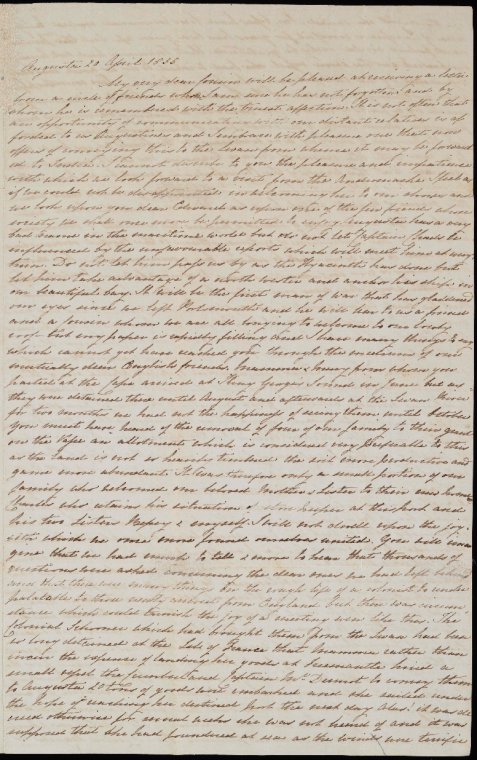 Augusta 20 April 1835
My very dear Cousin will be pleased at receiving a letter
from a circle of friends whom I am sure he has not forgotten and by
whom he is remembered with the truest affection. It is not often that
an opportunity of communicating with our distant relatives is af
forded to us by and I embrace with pleasure one that now
offers of conveying this to the whence it may be forwarded
ed to I cannot describe to you the pleasure and impatience
with which we look forward to a visit from the Andromache. I feel as
if we could not be disappointed in welcoming her to our shores and
we look upon you dear Edward as upon one of the few friends whose
society we shall ever be permitted to enjoy. Augusta has a very
bad name in the maritime world but do not let Captain Chads be
influenced by the unfavourable reports which will meet him at every
turn. Do not let him pass us by as the Hyacinth has done but
let him take advantage of a north wester and anchor his ship in
our beautiful bay. It will be the first man of war that has gladdened
our eyes since we left Portsmouth and he will bear to us a friend
and a cousin whom we are all longing to welcome to our lovely
But my paper is rapidly filling and I have many things to say
which cannot yet have reached you through the medium of our
mutually dear English friends. Mamma & from whom you
parted at the Cape arrived at King Georges Sound in June but as
they were detained there until August and afterwards at the Swan River
for two months we had not the happiness of seeing them until October
You must have heard of the removal of four of our family to their grant
on the Vasse an allotment which is considered very preferable to this
as the land is not so heavily timbered the soil more productive and
game more abundant. It was therefore only a small portion of our
family who welcomed our beloved Mother & Sister to their new home
Charles who retains his situation of storekeeper at this port and
his two Sisters Bessey & myself. I will not dwell upon the joy
with which we once more found ourselves united. You will ima
gine that we had much to tell & more to hear that thousands of
questions were asked concerning the dear ones we had left behind
and that there were many things for the rough life of a colonist to render
palatable to those newly arrived from England but there was no circum
stance which could tarnish the joy of a meeting such like this. The
Colonial Schooner which had brought them from the Swan had been
so long detained at the Isle of France that Mamma rather than
incur the expence of landing her goods at Freemantle hired a
small vessel the Cumberland Captain McDermott to convey them
to Augusta 20 tons of goods were embarked and she sailed under
the hope of reaching her destined port the next day Alas! it was de
creed otherwise for several weeks she was not heard of and it was
supposed that she had foundered at sea as the winds were terrific